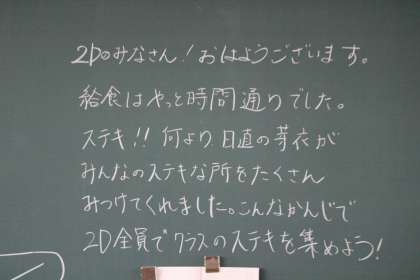 2Dのみなさん!おはようございます。
給食はやっと時間通りでした。
ステキ!!何より、日直の芽衣が
みんなのステキな所をたくさん
みつけてくれました。こんなかんじで
2D全員でクラスのステキを集めよう!